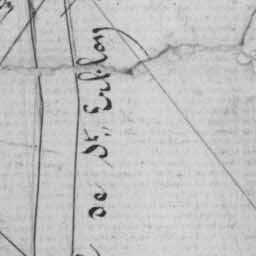 de St. Erblon